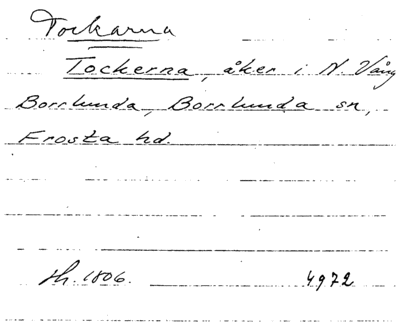 Tockarna
Tockerna, åker i N. Vång
Borrlunda, Borrlunda sn,
Frosta hd.
1806. 4972